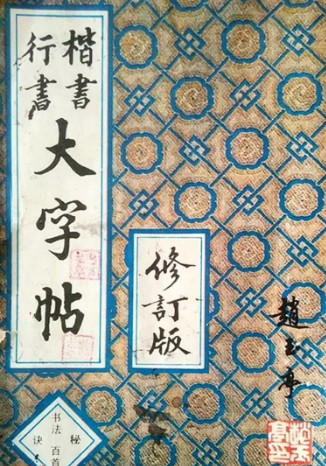 楷書
行書
大字帖
修訂版
趙玉亭
書法
秘訣
百首